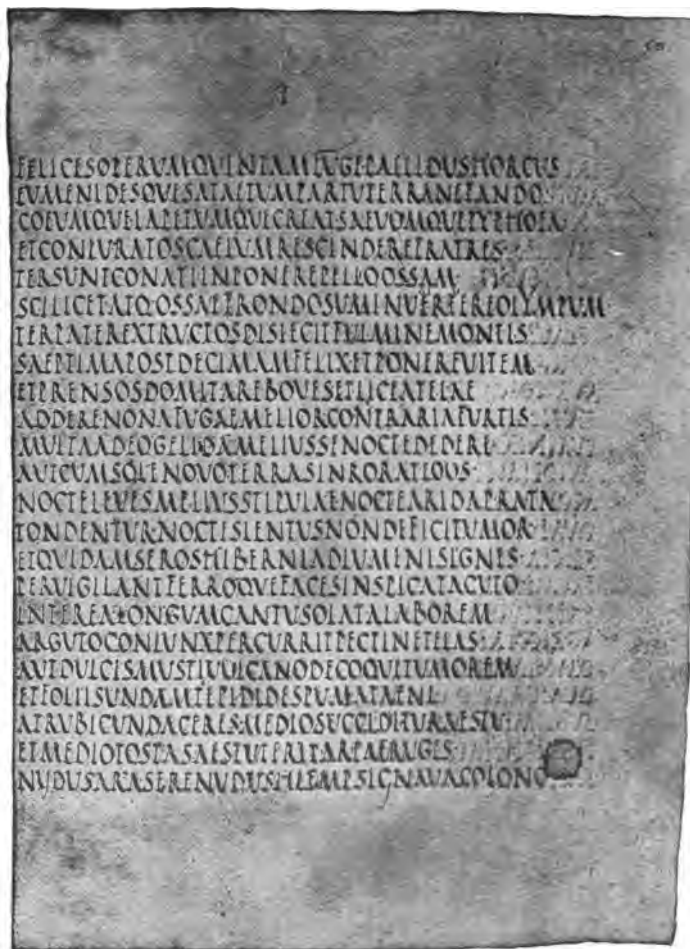 FELICESOPERVMQVINTAMFVGEPALLIDVSHORCVS
EVMENIDESQVESATAETVMPARTVTERRANEFANDO
COEVMQVEIAPETVMQVECREATSAEVOMQVETYPHOEA
ETCONIVRATOSCAELVMRESCINDEREFRATRES
TERSVNTCONATIINPONEREPELIOOSSAM
SCILICETATQOSSAEFRONDOSVMINVERTEREOLYMPVM
TERPATEREXTRVCTOSDISIECITFVLMINEMONTIS
SAEPTIMAPOSTDECIMAMFELIXETPONEREVITEM
ETPRENSOSDOMITAREBOVESETLICIATELAE
ADDERENONAFVGAEMELIORCONTRARIAFVRTIS
MVLTAADEOGELIDAMELIVSSENOCTEDEDERE
AVTCVMSOLENOVOTERRASINRORATEOVS
NOCTELEVESMELIVSSTIPVLAENOCTEARIDAPRATA
TONDENTVRNOCTISLENTVSNONDEFICITVMOR
ETQVIDAMSEROSHIBERNIADLVMINISIGNES
PERVIGILANTFERROQVEFACESINSPICATACVTO
INTEREALONGVMCANTVSOLATALABOREM
ARGVTOCONIVNXPERCVRRITPECTINETELAS
AVTDVLCISMVSTIVVLCANODECOQVITVMOREM
ETFOLIISVNDAMTEPIDIDESPVMATAENI
ATRVBICVNDACERESMEDIOSVCCIDITVRAESTV
ETMEDIOTOSTASAESTVTERITAREAFRVGES
NVDVSARASERENVDVSHIEMPSIGNAVACOLONO